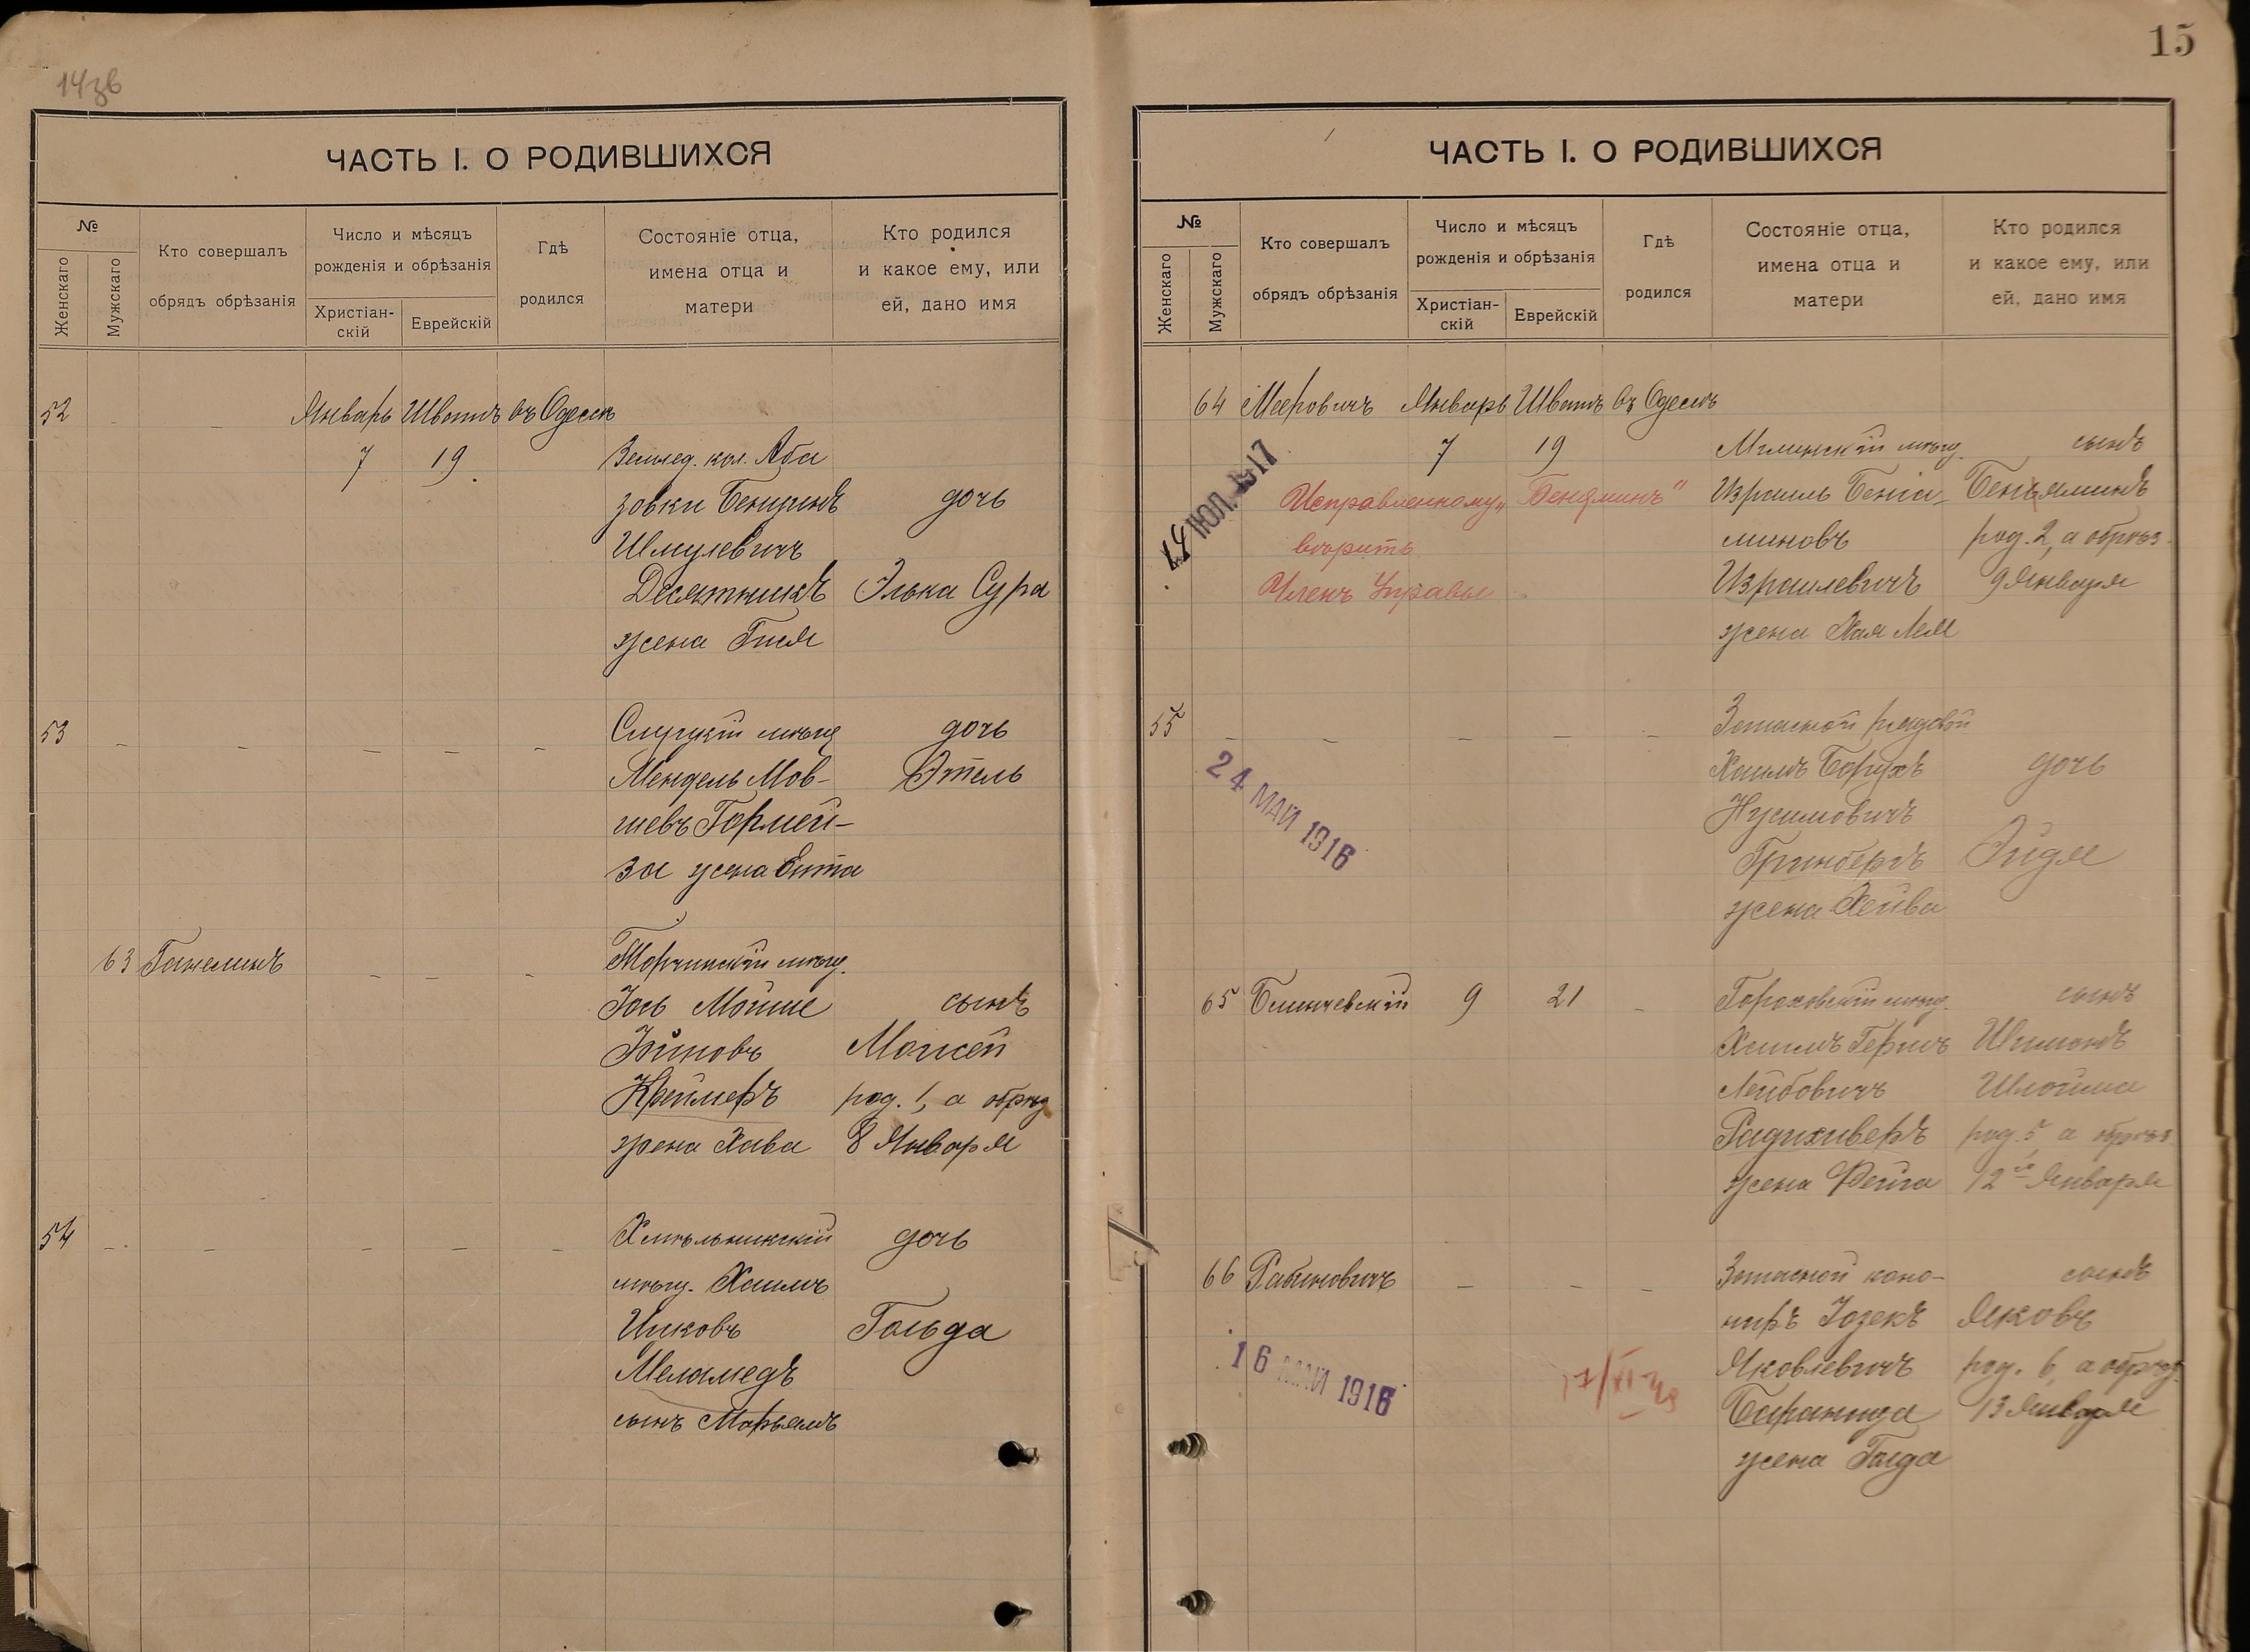 14зв
ЧАСТЬ I. О РОДИВШИХСЯ
№
Женскаго
Мужскаго
Кто совершалъ
обрядъ обрѣзанія
Число и мѣсяцъ
рожденія и обрѣзанія
Христіан-
скій
Еврейскій
Гдѣ
родился
Состояніе отца,
имена отца и
матери
Кто родился
и какое ему, или
ей, дано имя
52 Январь Шватъ въ Одессѣ
7 19. Землед. кол. Аба
зовки Бенціонъ дочь
Шмулевичъ
Десятникъ Элька Сура
жена Гися
53 Слуцкій мѣщ дочь
Мендель Мов- Этель
шевъ Гормей-
за жена Ента
63 Ганелинъ Торчинскій мѣщ.
Іось Мойше сынъ
Іойновъ Моисей
Креймеръ род. 1, а обрѣз
жена Хава 8 Января
54 Хмѣльникскій дочь
мѣщ. Хаимъ
Ицковъ Гольда
Меламедъ
сынъ Марьямъ
15
ЧАСТЬ I. О РОДИВШИХСЯ
№
Женскаго
Мужскаго
Кто совершалъ
обрядъ обрѣзанія
Число и мѣсяцъ
рожденія и обрѣзанія
Христіан-
скій
Еврейскій
Гдѣ
родился
Состояніе отца,
имена отца и
матери
Кто родился
и какое ему, или
ей, дано имя
64 Мееровичъ Январь Шватъ въ Одессѣ
7 19 мѣщ. сынъ
14 ІЮЛ. 1917
Исправленному „Беняминъ" Израиль Беніа- Беньяминъ
вѣрить миновъ род. 2, а обрѣз.
Членъ Управы Израилевичъ 9 Января
жена Хая Лея
55 Запасной рядовой
24 МАЙ 1916
Хаимъ Борухъ дочь
Нусимовичъ
Гринбергъ Эйдя
жена Хейва
65 Блинчевскій 9 21 Гороховскій мѣщ. сынъ
Хаимъ Гершъ Шимонъ
Лейбовичъ Шлойма
Радихиверъ род. 5, а обрѣз
жена Фейга 12го Января
66 Рабиновичъ Запасной кано- сынъ
ниръ Іозекъ Яковъ
16 МАЙ 1916
Яковлевичъ род. 6, а обрѣз.
Баранида 13 Января
жена Голда